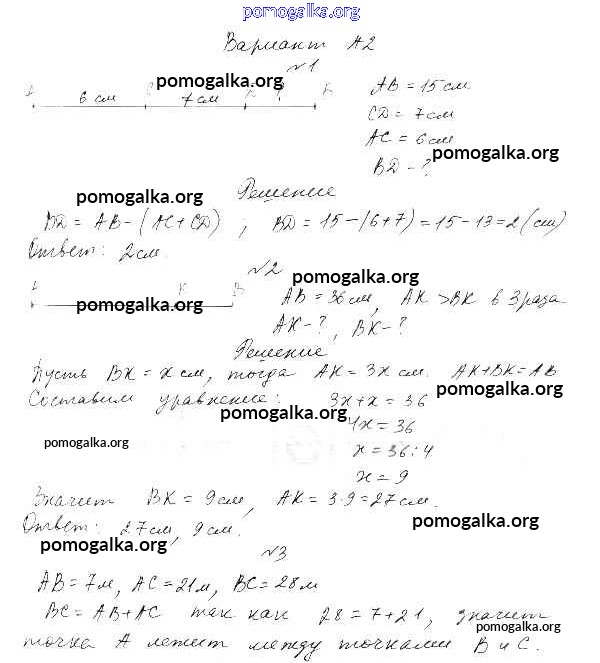 pomogalka.org
Вариант А2
№1
pomogalka.org
A 6 см C 7 см ? B
AB = 15 см
CD = 7 см
AC = 6 см
pomogalka.org
BD - ?
Решение
pomogalka.org
BD = AB - (AC + CD) ; BD = 15 - (6+7) = 15 - 13 = 2 (см)
Ответ: 2 см.
№2
pomogalka.org
A K B
pomogalka.org
AB = 36 см, AK > BK в 3 раза
AK - ? , BK - ?
Решение
Пусть BK = x см, тогда AK = 3x см. AK + BK = AB
pomogalka.org
Составим уравнение: 3x + x = 36
pomogalka.org
4x = 36
pomogalka.org
x = 36 : 4
x = 9
Значит BK = 9 см, AK = 3 · 9 = 27 см.
pomogalka.org
Ответ: 27 см, 9 см.
pomogalka.org
№3
AB = 7м, AC = 21м, BC = 28м
BC = AB + AC так как 28 = 7 + 21, значит
pomogalka.org
точка A лежит между точками B и C.
pomogalka.org